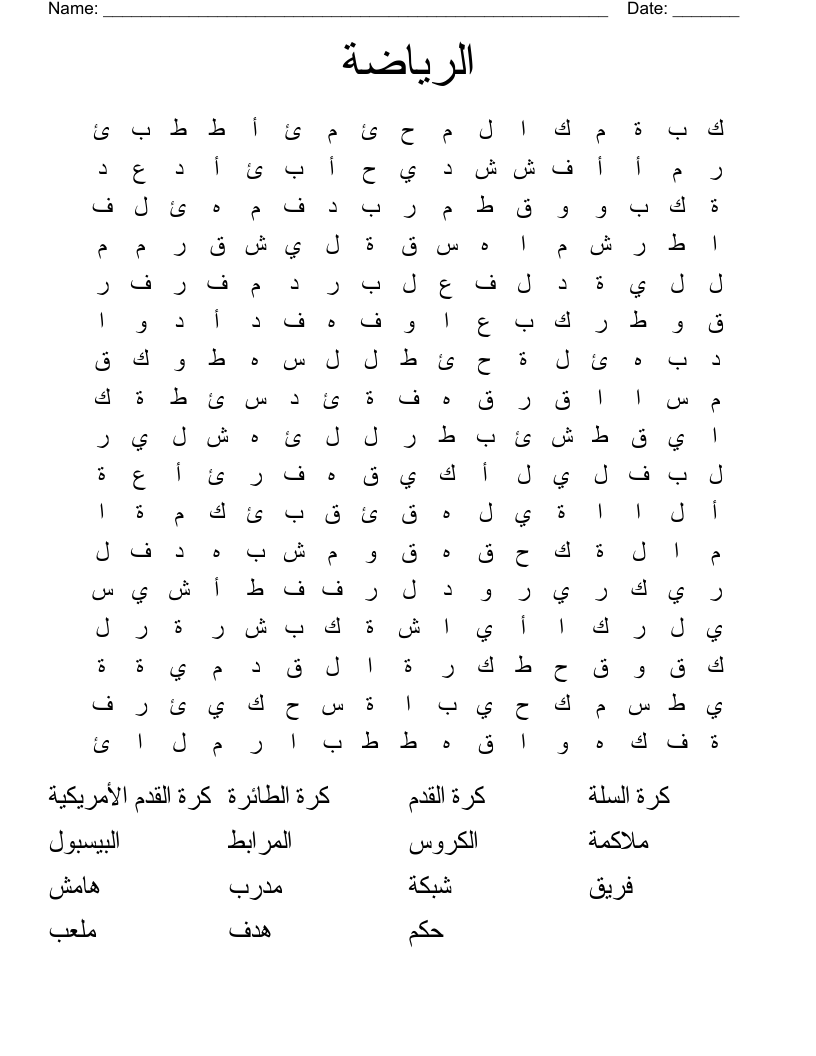 Name: ______________________________________________________ Date: _______
الرياضة
ك ب ة م ك ا ل م ح ئ م ئ أ ط ط ب ئ
ر م أ أ ف ش ش د ي ح أ ب ئ أ د ع د
ة ك ب و و ق ط م ر ب د ف م ه ئ ل ف
ا ط ر ش م ا ه س ق ة ل ي ش ق ر م م
ل ل ي ة د ل ف ع ل ب ر د م ف ر ف ر
ق و ط ر ك ب ع ا و ف ه ف د أ د و ا
د ب ه ئ ل ة ح ئ ط ل ل س ه ط و ك ق
م س ا ا ق ر ق ه ف ة ئ د س ئ ط ة ك
ا ي ق ط ش ئ ب ط ر ل ل ئ ه ش ل ي ر
ل ب ف ل ي ل أ ك ي ق ه ف ر ئ أ ع ة
أ ل ا ا ة ي ل ه ق ئ ق ب ئ ك م ة ا
م ا ل ة ك ح ق ه ق و م ش ب ه د ف ل
ر ي ك ر ي ر و د ل ر ف ف ط أ ش ي س
ي ل ر ك ا أ ي ا ش ة ك ب ش ر ة ر ل
ك ق و ق ح ط ك ر ة ا ل ق د م ي ة ة
ي ط س م ك ح ي ب ا ة س ح ك ي ئ ر ف
ة ف ك ه و ا ق ه ط ط ب ا ر م ل ا ئ
كرة السلة كرة القدم كرة الطائرة كرة القدم الأمريكية
ملاكمة الكروس المرابط البيسبول
فريق شبكة مدرب هامش
حكم هدف ملعب